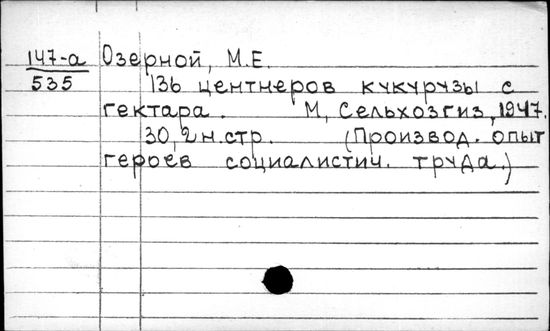 147-а Озерной, М.Е.
535 136 центнеров кукурузы с
гектара. М, Сельхозгиз, 1947.
30, 2 н.стр. (Производ. опыт
героев социалистич. труда.)